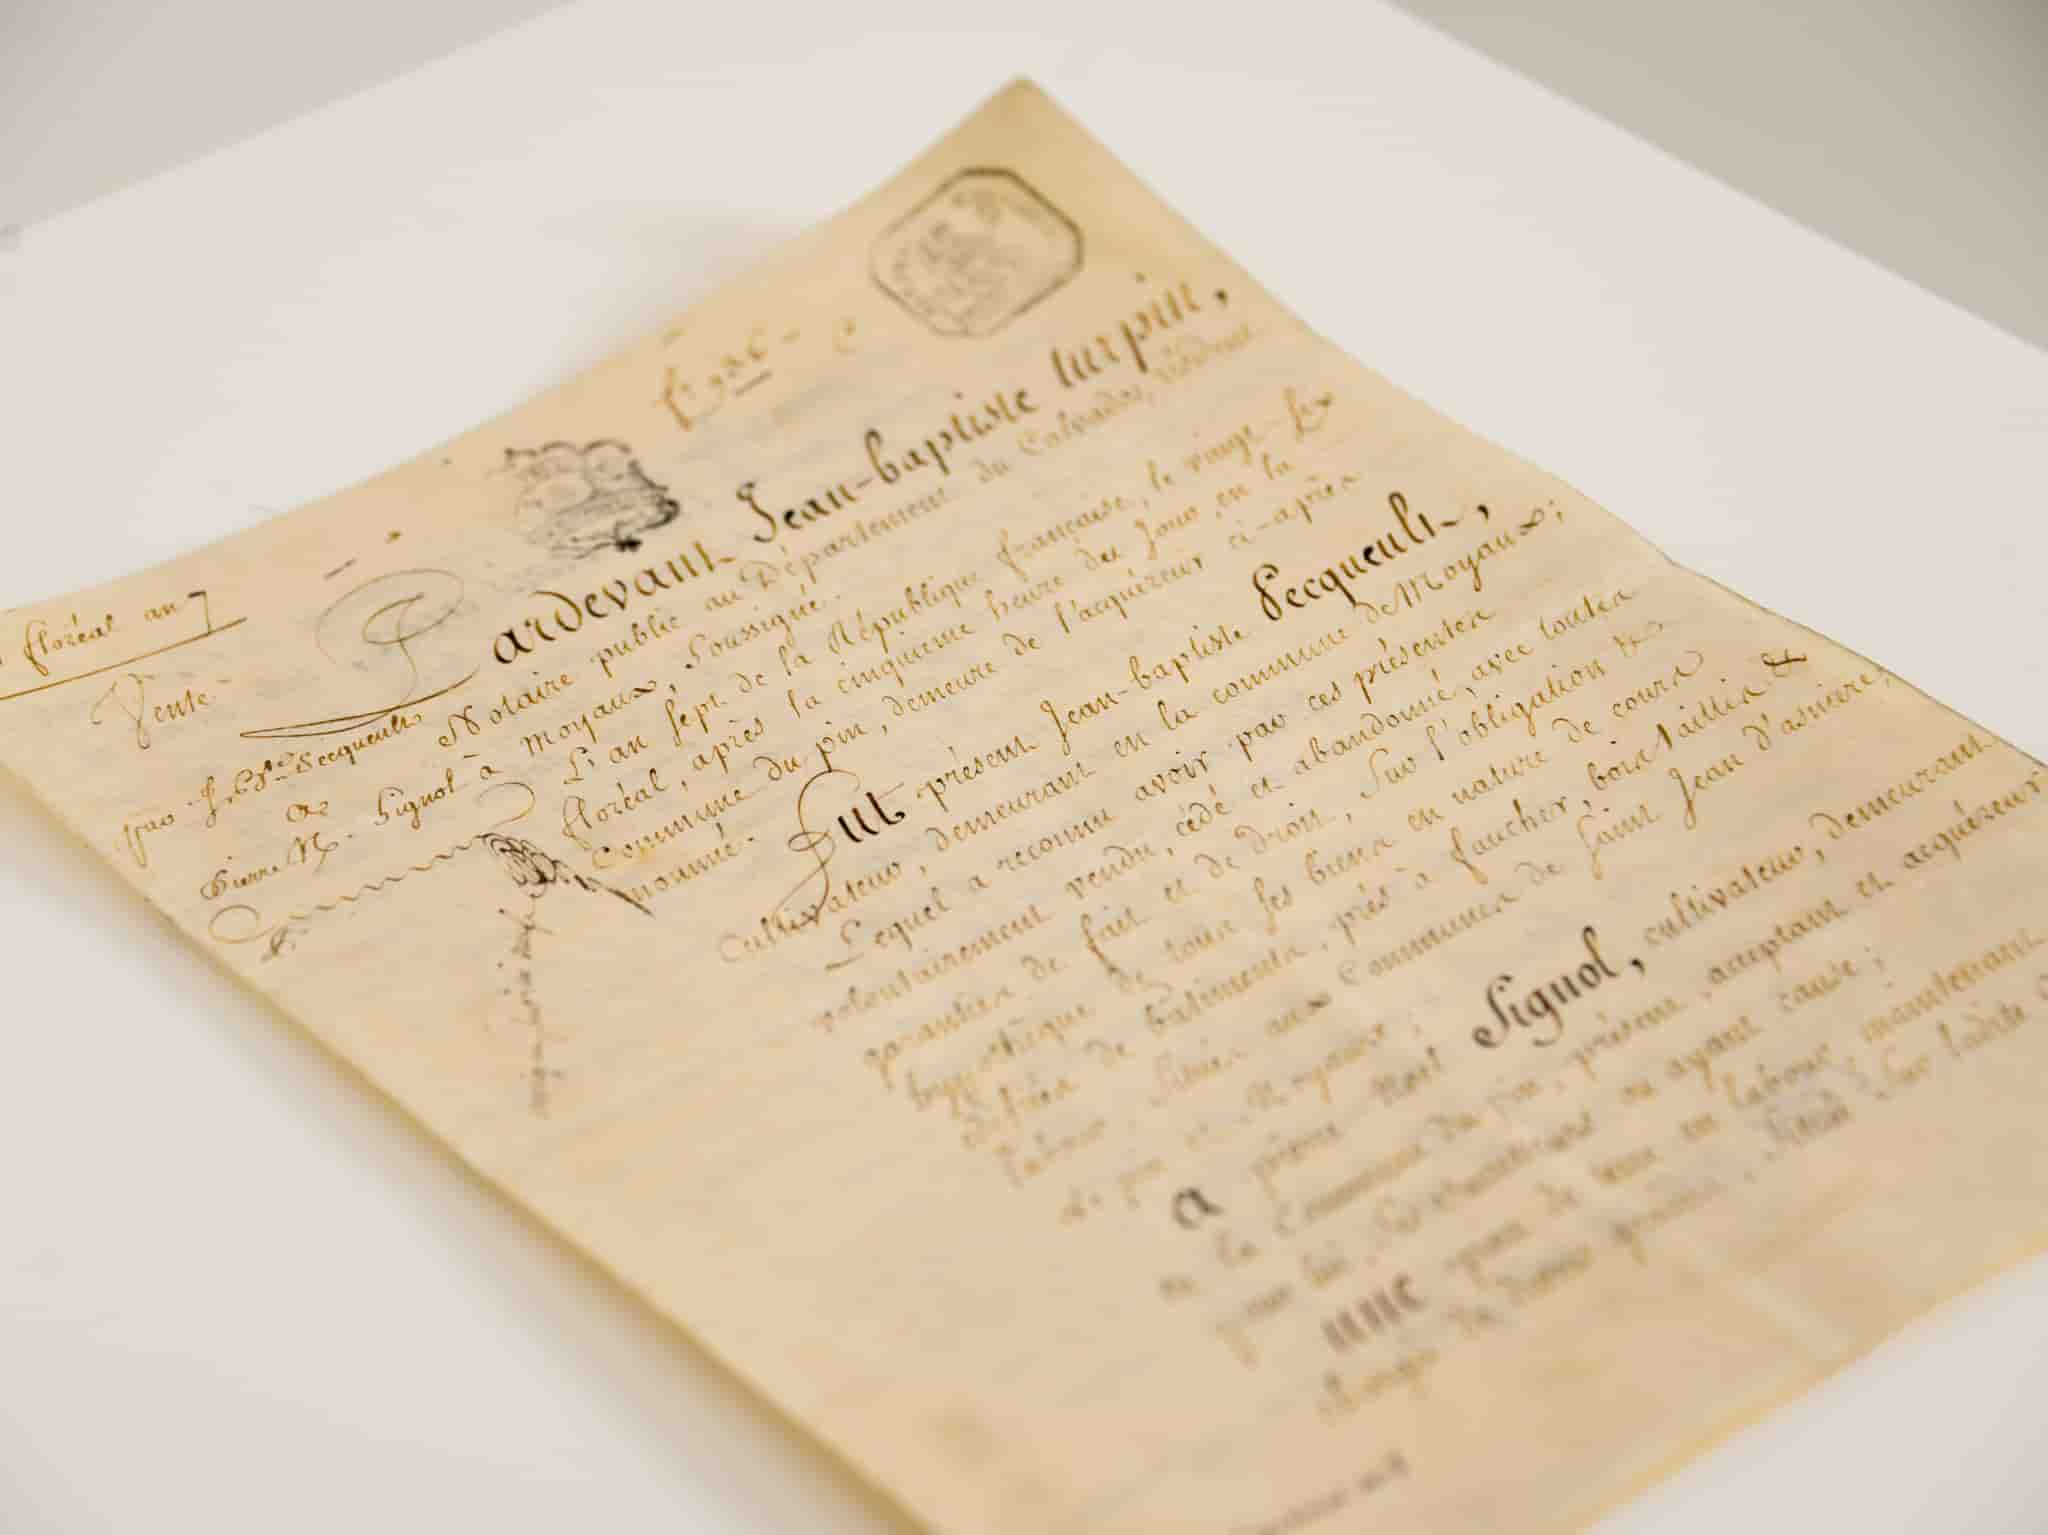 floréal an 7
Vente
par J. Bte. Lecqueult
à
Pierre N. Signol
Pardevant Jean-baptiste turpin,
Notaire public au Département du Calvados, résidant
à Moyaux, Soussigné.
L'an sept de la République française, le vingt-six
floréal, après la cinquieme heure du Jour, en la
Commune du pin, demeure de l'acquéreur ci-après
nommé.
fut présent Jean-baptiste Lecqueult,
Cultivateur, demeurant en la commune de Moyaux;
Lequel a reconnu avoir par ces présentes
volontairement vendu, cédé et abandonné, avec toutes
garanties de fait et de droit, sur l'obligation &
hypothèque de tous ses biens en nature de cours
de batiments, prés à faucher, bois taillis &
labour, situés aux communes de saint Jean d'asniere,
le pin et Moyaux;
a pierre Noel Signol, cultivateur, demeurant
en la Commune du pin, présent, acceptant et acquéreur
pour lui, ses ou ayant cause;
une piece de terre en labour, maintenant
située sur ladite